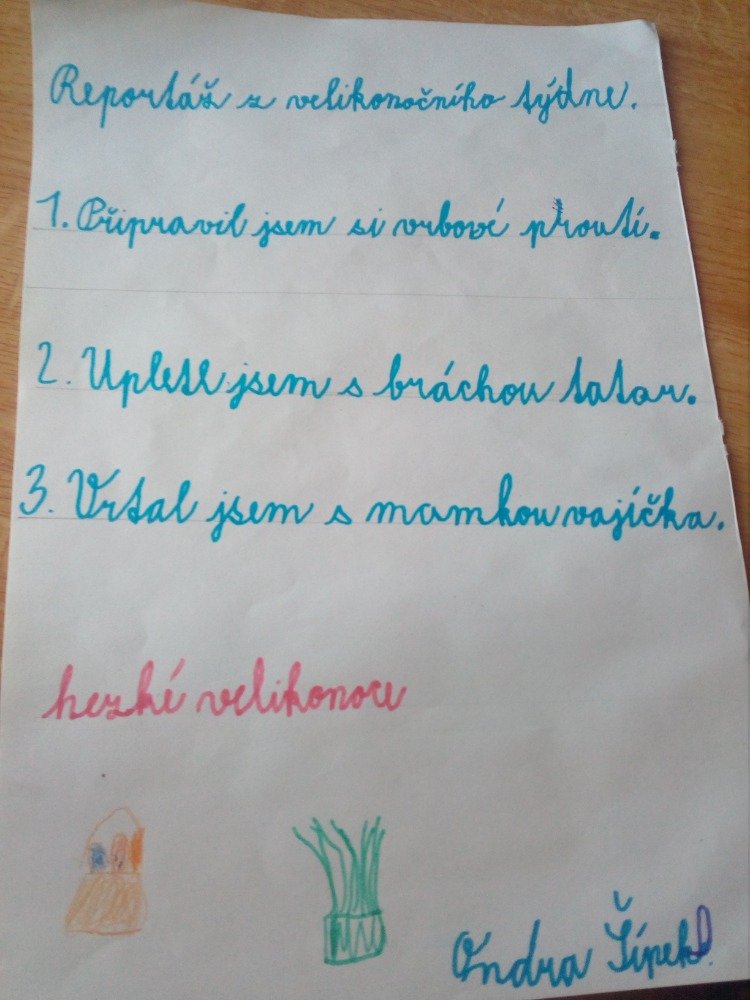 Reportáž z velikonočního týdne.
1. Připravil jsem si vrbové proutí.
2. Upletl jsem s bráchou tatar.
3. Vrtal jsem s mamkou vajíčka.
hezké velikonoce
Ondra Šípek